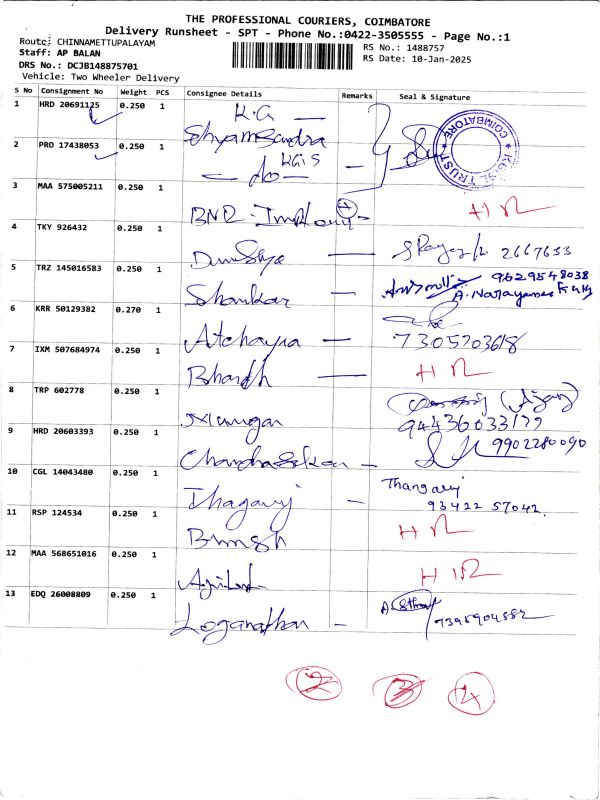 THE PROFESSIONAL COURIERS, COIMBATORE
Delivery Runsheet - SPT - Phone No.:0422-3505555 - Page No.:1
Route: CHINNAMETTUPALAYAM
RS No.: 1488757
Staff: AP BALAN
RS Date: 10-Jan-2025
DRS No.: DCJB148875701
Vehicle: Two Wheeler Delivery
S No Consignment No Weight PCS Consignee Details Remarks Seal & Signature
1 HRD 20691125 0.250 1 K.G
Shyamsandra
COIMBATORE
TRUST
2 PRO 17438053 0.250 1 KGiS
do
3 MAA 575005211 0.250 1
BNR
4 TKY 926432 0.250 1
2667633
5 TRZ 145016583 0.250 1 9629548038
Shankar A. Narayanas
6 KRR 50129382 0.270 1
Atchaya 7305703618
7 IXM 507684974 0.250 1
Bharath
8 TRP 602778 0.250 1
94436033177
9 HRD 20603393 0.250 1 9902280090
Chandrasekar
10 CGL 14043480 0.250 1 Thangaraj
Thagaraj 93422 57042
11 RSP 124534 0.250 1
12 MAA 568651016 0.250 1
13 EDQ 26008809 0.250 1
Loganathan 7395904552
2 3 4